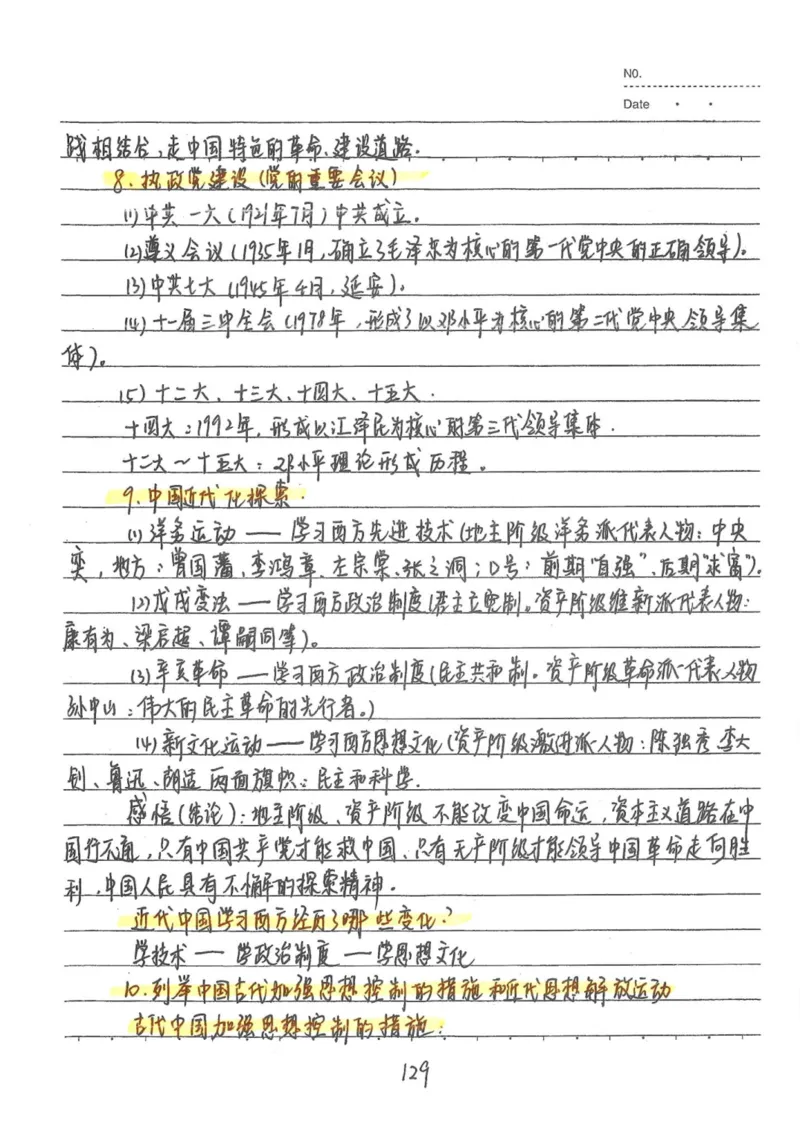 NO.
Date
践相结合,走中国特色的革命、建设道路.
8.执政党建设(党的重要会议)
(1)中共一大(1921年7月)中共成立。
(2)遵义会议(1935年1月,确立了毛泽东为核心的第一代党中央的正确领导)。
(3)中共七大(1945年4月,延安)。
(4)十一届三中全会(1978年,形成了以邓小平为核心的第二代党中央领导集
体)。
(5)十二大、十三大、十四大、十五大.
十四大:1992年,形成以江泽民为核心的第三代领导集体.
十二大~十五大:邓小平理论形成历程。
9.中国近代化探索.
(1)洋务运动——学习西方先进技术(地主阶级洋务派代表人物:中央
奕,地方:曾国藩、李鸿章、左宗棠、张之洞;口号:前期"自强"、后期"求富")。
(2)戊戌变法——学习西方政治制度(君主立宪制。资产阶级维新派代表人物:
康有为、梁启超、谭嗣同等)。
(3)辛亥革命——学习西方政治制度(民主共和制。资产阶级革命派代表人物
孙中山:伟大的民主革命的先行者。)
(4)新文化运动——学习西方思想文化(资产阶级激进派人物:陈独秀、李大
钊、鲁迅、胡适 两面旗帜:民主和科学.
感悟(结论):地主阶级、资产阶级不能改变中国命运,资本主义道路在中
国行不通,只有中国共产党才能救中国、只有无产阶级才能领导中国革命走向胜
利,中国人民具有不懈的探索精神.
近代中国学习西方经历了哪些变化?
学技术——学政治制度——学思想文化
10.列举中国古代加强思想控制的措施和近代思想解放运动
古代中国加强思想控制的措施:
129